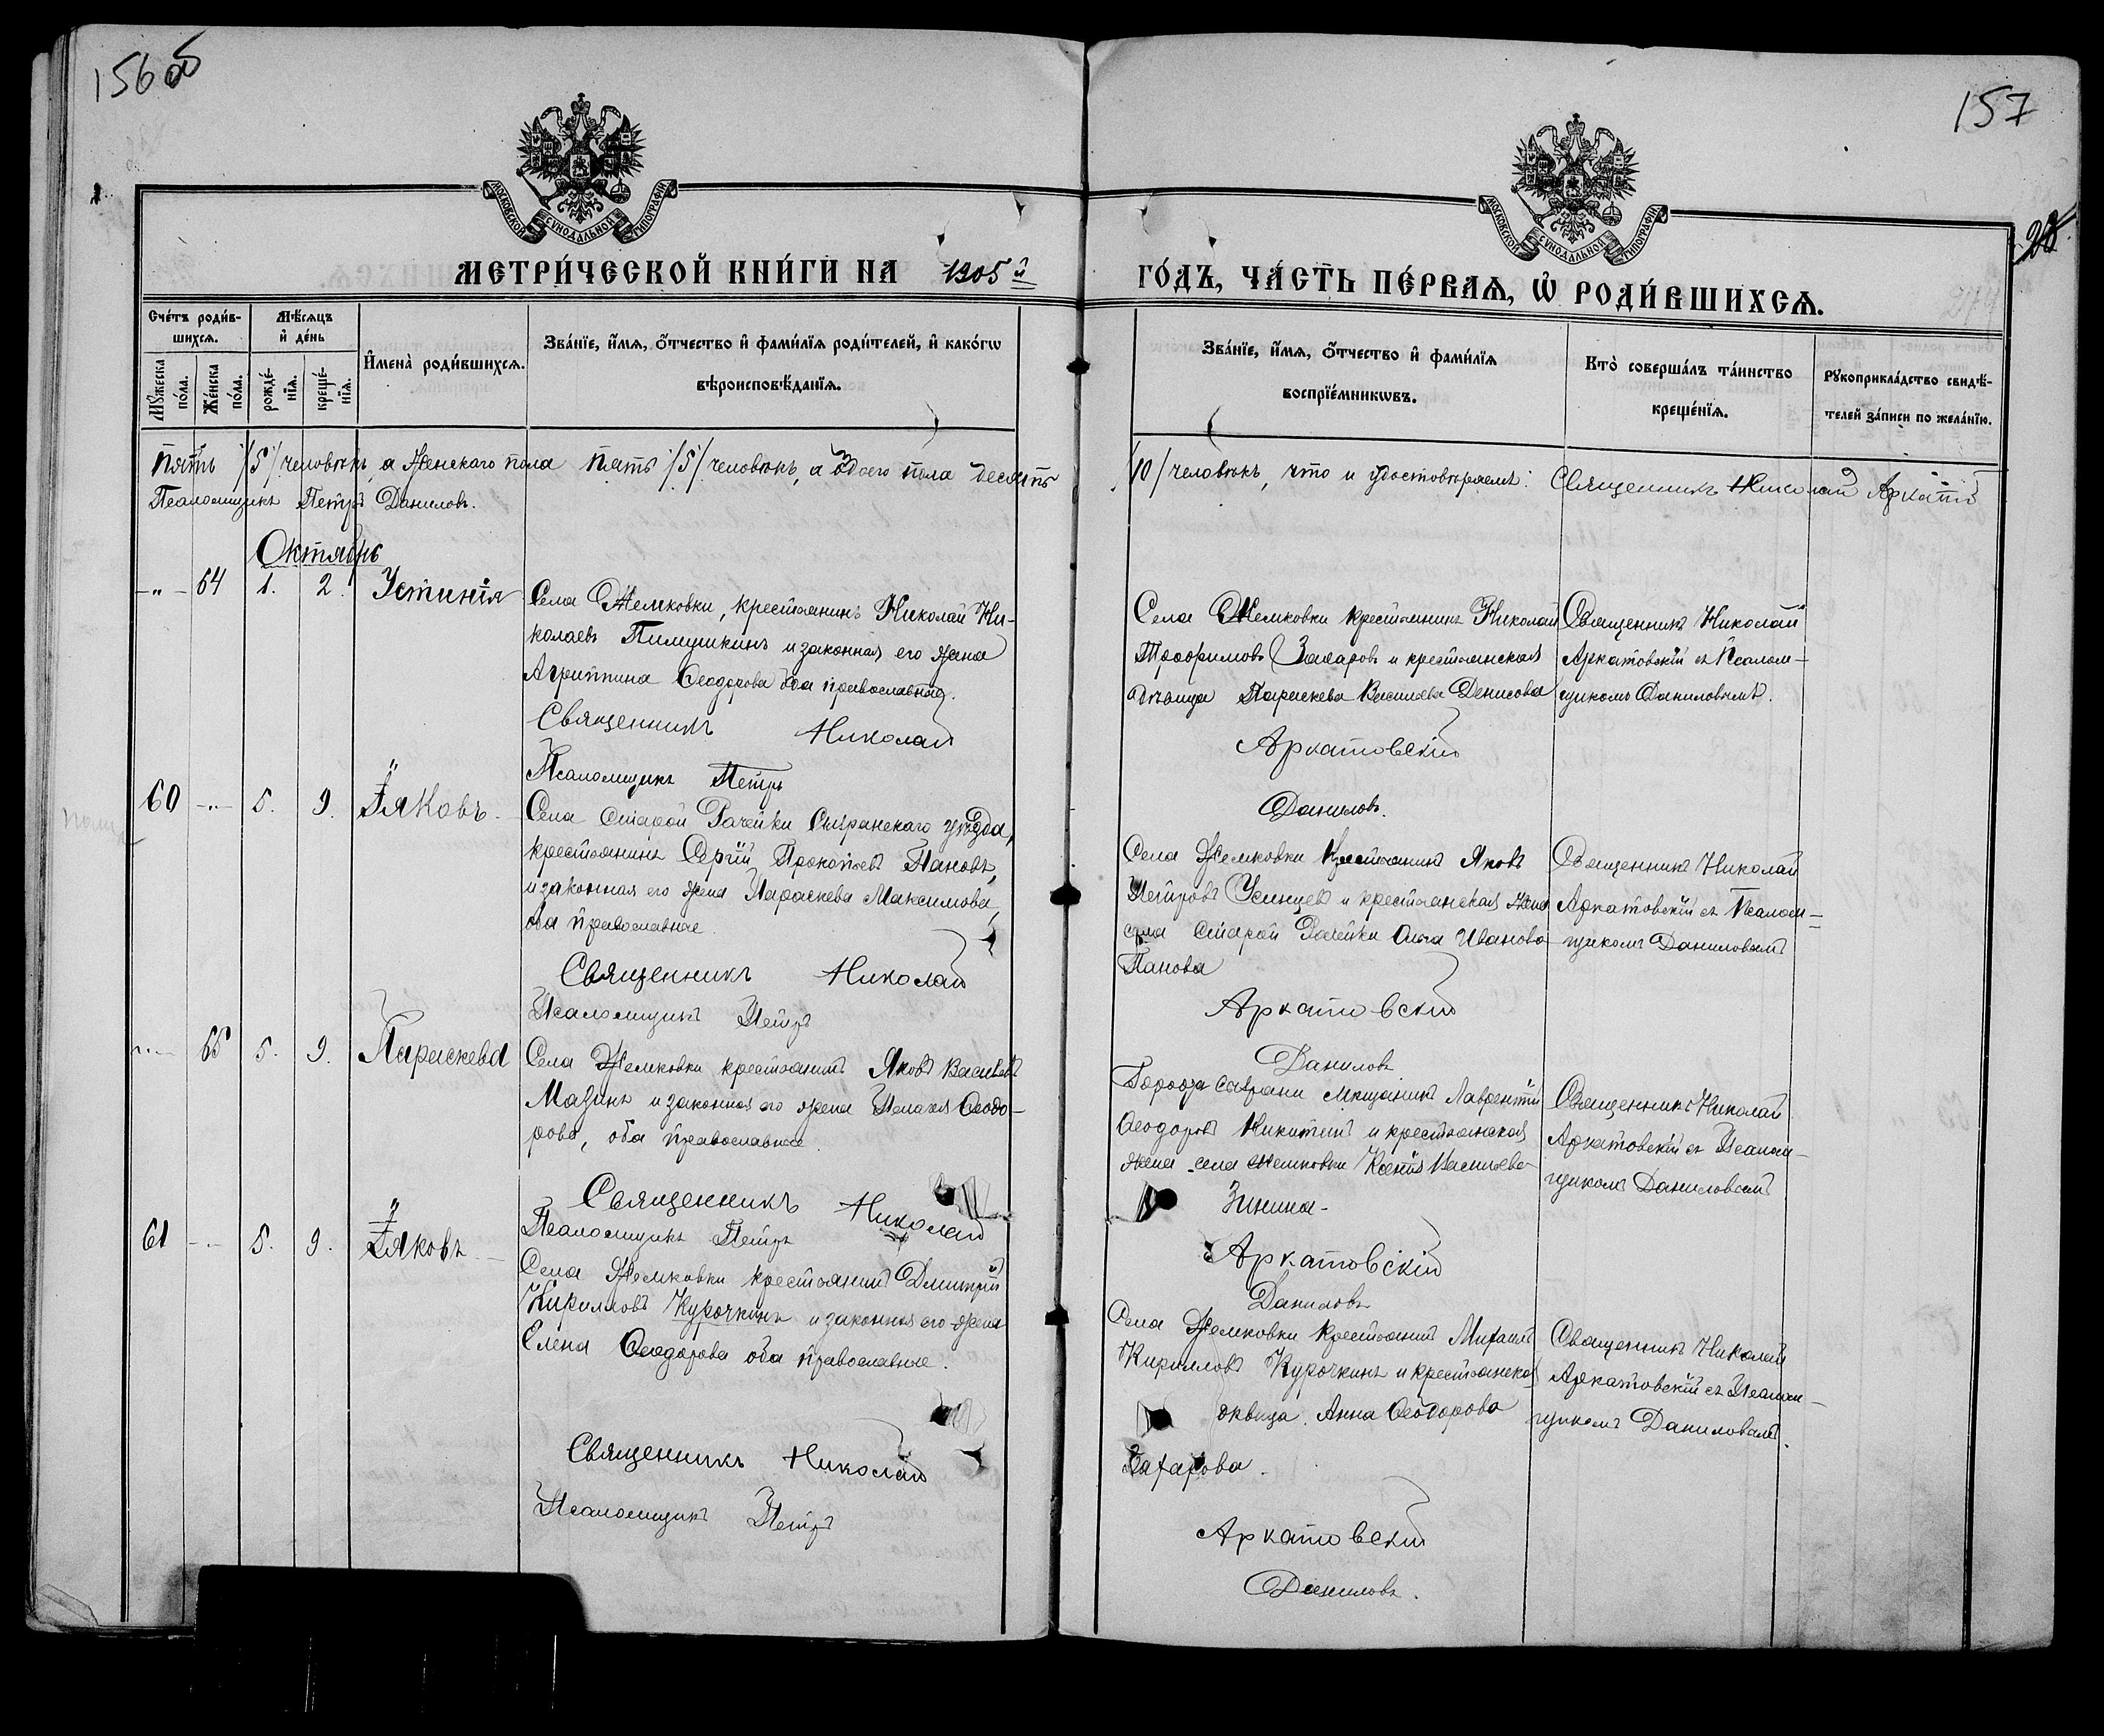 156 об
157
МОСКОВСКОЙ СѴНОДАЛЬНОЙ ТИПОГРАФІИ
МОСКОВСКОЙ СѴНОДАЛЬНОЙ ТИПОГРАФІИ
МЕТРИ́ЧЕСКОЙ КНИ́ГИ НА 1905 й
ГО́ДЪ, ЧА́СТЬ ПЕ́РВАѦ, Ѽ РОДИ́ВШИХСѦ.
Сче́тъ роди́в-
шихсѧ.
Мѣ́сѧцъ
и҆ де́нь
Мꙋ́жеска
по́ла.
Же́нска
по́ла.
рожде́-
нїѧ.
креще́-
нїѧ.
И҆мена̀ роди́вшихсѧ.
Зва́нїе, и҆́мѧ, ѻ҆́тчество и҆ фами́лїѧ роди́телей, и҆ како́гѡ
вѣроисповѣ́данїѧ.
Зва́нїе, и҆́мѧ, ѻ҆́тчество и҆ фами́лїѧ
воспрїе́мникѡвъ.
Кто̀ соверша́лъ та́инство
креще́нїѧ.
Рꙋкоприкла́дство свидѣ́-
телей за́писи по жела́нїю.
пять /5/ человѣкъ, а женскаго пола пять /5/ человѣкъ, а обоего пола десять
/10/ человѣкъ, что и удостовѣряемъ: Священникъ Николай Аркатов
Псаломщикъ Петръ Даниловъ.
Октябрь
-"- 64 1. 2. Устинія
Села Жемковки, крестьянинъ Николай Ни-
колаевъ Пилюшкинъ и законная его жена
Агриппина Ѳеодорова оба православные.
Священникъ Николай
Псаломщикъ Петръ
Села Жемковки крестьянинъ Николай
Трофимовъ Захаровъ и крестьянская
дѣвица Параскева Васильева Денисова
Аркатовскій
Даниловъ.
Священникъ Николай
Аркатовскій съ Псалом-
щикомъ Даниловымъ.
60 -"- 5. 9. Іяковъ.
Села Старой Рачейки Сызранскаго уѣзда,
крестьянинъ Сергій Прокопьевъ Пановъ,
и законная его жена Параскева Максимова,
оба православные
Священникъ Николай
Псаломщикъ Петръ
Села Жемковки крестьянинъ Яковъ
Петровъ и крестьянская жена
села Старой Рачейки Ольга Иванова
Панова
Аркатовскій
Даниловъ
Священникъ Николай
Аркатовскій съ Псалом-
щикомъ Даниловымъ
-"- 65 5. 9. Параскева
Села Жемковки крестьянинъ Яковъ Васильевъ
Мазинъ и законная его жена Пелагея Ѳеодо-
рова, оба православные
Священникъ Николай
Псаломщикъ Петръ
Города Сызрани мѣщанинъ Лаврентій
Ѳеодоровъ Никитинъ и крестьянская
жена села Жемковки Ксенія Васильева
Зинина-
Аркатовскій
Даниловъ
Священникъ Николай
Аркатовскій съ Псалом-
щикомъ Даниловымъ
61 -"- 5. 9. Іяковъ
Села Жемковки крестьянинъ Дмитрій
Кирилловъ Курочкинъ и законная его жена
Елена Ѳеодорова оба православные.
Священникъ Николай
Псаломщикъ Петръ
Села Жемковки крестьянинъ Михаилъ
Кирилловъ Курочкинъ и крестьянская
дѣвица Анна Ѳеодорова
Захарова.
Аркатовскій
Даниловъ.
Священникъ Николай
Аркатовскій съ Псалом-
щикомъ Даниловымъ.